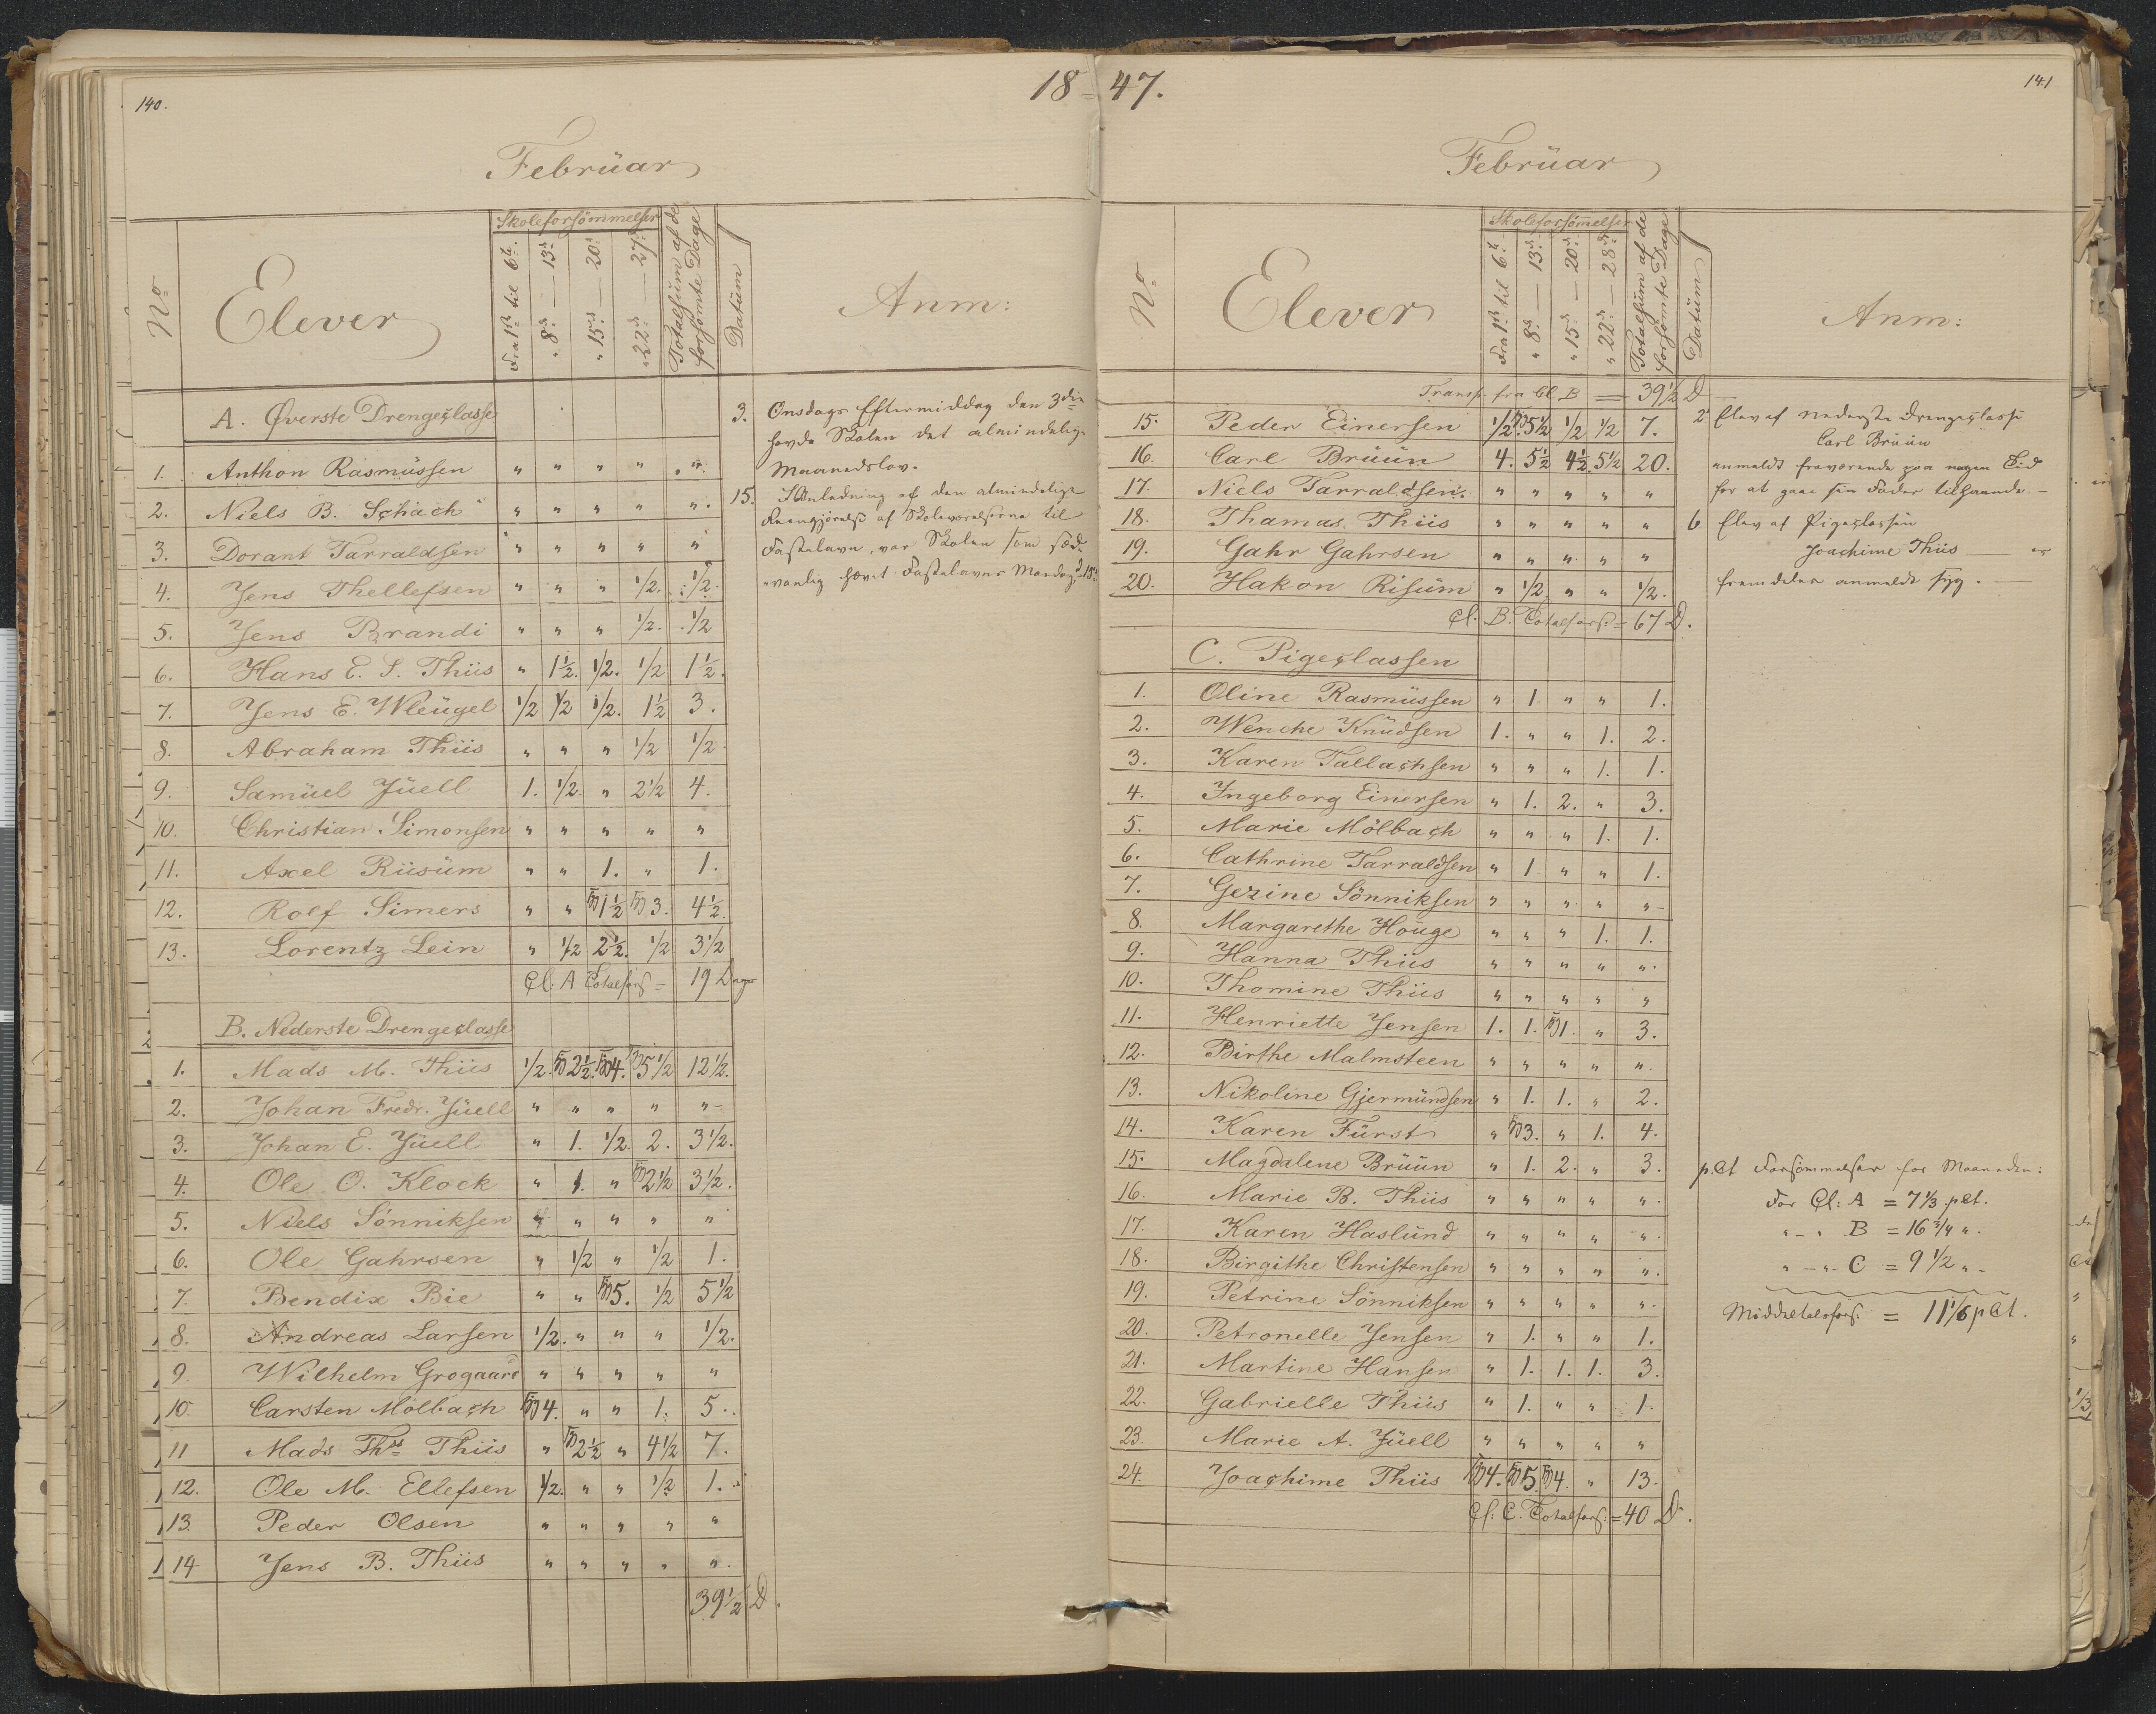 140.
18 = 47.
141
Februar
Skoleforsömmelser
No
Elever
Fra 1ste til 6te
" 8de — 13de
" 15de — 20de
" 22de — 27de
Totalsum af de forsömte Dage
Datum
Anm:
A. Øverste Drengeclasse
1. Anthon Rasmussen " " " " "
2. Niels B. Schach " " " " "
3. Dorant Tarraldsen " " " " "
4. Jens Thellefsen " " " 1/2. 1/2.
5. Jens Brandi " " " 1/2. 1/2
6. Hans E. S. Thiis " 1 1/2. 1/2. 1/2 1 1/2.
7. Jens E. Wleugel 1/2 1/2 1/2. 1 1/2 3.
8. Abraham Thiis " " " 1/2 1/2
9. Samuel Juell 1. 1/2. " 2 1/2 4.
10. Christian Simonsen " " " " "
11. Axel Riisum " " 1. " 1.
12. Rolf Simers " " 1 1/2 3. 4 1/2.
13. Lorentz Lein " 1/2 2 1/2. 1/2 3 1/2
Cl. A Totalfors = 19 Dage
B. Nederste Drengeclasse
1. Mads M. Thiis 1/2. 2 1/2. 4. 5 1/2 12 1/2.
2. Johan Fredr. Juell " " " " "
3. Johan E. Juell " 1. 1/2. 2. 3 1/2.
4. Ole O. Klock " 1. " 2 1/2 3 1/2.
5. Niels Sönniksen " " " " "
6. Ole Gahrsen " 1/2 " 1/2 1.
7. Bendix Bie " " 5. 1/2 5 1/2
8. Andreas Larsen 1/2. " " " 1/2.
9. Wilhelm Grogaard " " " " "
10. Carsten Mölbach 4. " " 1. 5.
11 Mads Ths Thiis " 2 1/2 " 4 1/2 7.
12. Ole M. Ellefsen 1/2. " " 1/2 1.
13. Peder Olsen " " " " "
14 Jens B. Thiis " " " " "
39 1/2 D.
3. Onsdags Eftermiddag den 3die
havde Skolen det almindelige
Maanedslov.
15. I Anledning af den almindelige
Reengjörelse af Skoleværelserne til
Fastelavn, var Skolen som sæd-
vanlig hævet Fastelavns Mandag d 15de
Februar
Skoleforsömmelser
No
Elever
Fra 1ste til 6te
" 8de — 13de
" 15de — 20de
" 22de — 28de
Totalsum af de forsömte Dage
Datum
Anm:
Transp. fra Cl. B = 39 1/2 D
15. Peder Einersen 1/2 5 1/2 1/2 1/2 7.
16. Carl Bruun 4. 5 1/2 4 1/2 5 1/2 20.
17. Niels Tarraldsen " " " " "
18. Thomas Thiis " " " " "
19. Gahr Gahrsen " " " " "
20. Hakon Risum " 1/2. " " 1/2.
Cl. B. Totalfors. = 67 D.
C. Pigeclassen
1. Oline Rasmussen " 1. " " 1.
2. Wenche Knudsen 1. " " 1. 2.
3. Karen Tallachsen " " " 1. 1.
4. Ingeborg Einersen " 1. 2. " 3.
5. Marie Mölbach " " " 1. 1.
6. Cathrine Tarraldsen " 1 " " 1.
7. Gezine Sönniksen " " " " "
8. Margarethe Houge " " " 1. 1.
9. Hanna Thiis " " " " "
10. Thomine Thiis " " " " "
11. Henriette Jensen 1. 1. 1. " 3.
12. Birthe Malmsteen " " " " "
13. Nikoline Gjermundsen " 1. 1. " 2.
14. Karen Fürst " 3. " 1. 4.
15. Magdalene Bruun " 1. 2. " 3.
16. Marie B. Thiis " " " " "
17. Karen Haslund " " " " "
18. Birgithe Christensen " " " " "
19. Petrine Sönniksen " " " " "
20. Petronelle Jensen " 1. " " 1.
21. Martine Hansen " 1. 1. 1. 3.
22. Gabrielle Thiis " 1. " " 1.
23. Marie A. Juell " " " " "
24. Joachime Thiis 4. 5. 4. " 13.
Cl. C. Totalfors: = 40 D.
2 Elev af nederste Drengeclasse
Carl Bruun
anmeldt fraværende paa nogen Tid
for at gaae sin Fader tilhaande. —
6 Elev af Pigeclassen
Joachime Thiis — er
fremdeles anmeldt syg. —
p.Ct Forsömmelser for Maaneden:
For Cl: A = 7 1/3 pCt.
" - " B = 16 3/4 ".
" - " C = 9 1/2 " -
Middeltalsfors. = 11 1/6 pCt.